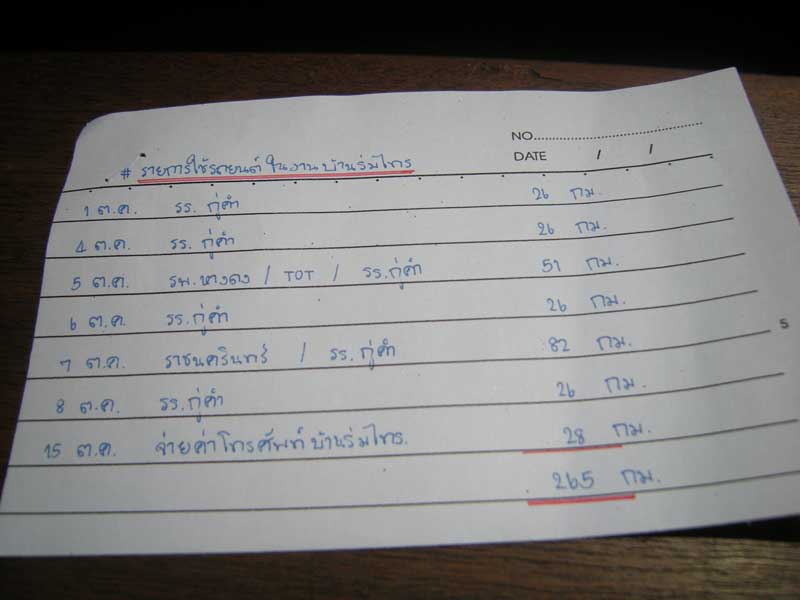 NO.
DATE / /
# รายการใช้รถยนต์ ในงาน บ้านร่มไทร
1 ต.ค. รร. กู่คำ 26 กม.
4 ต.ค. รร. กู่คำ 26 กม.
5 ต.ค. รพ.หางดง / TOT / รร.กู่คำ 51 กม.
6 ต.ค. รร.กู่คำ 26 กม.
7 ต.ค. ราชนครินทร์ / รร.กู่คำ 82 กม.
8 ต.ค. รร.กู่คำ 26 กม.
15 ต.ค. จ่ายค่าโทรศัพท์ บ้านร่มไทร. 28 กม.
265 กม.